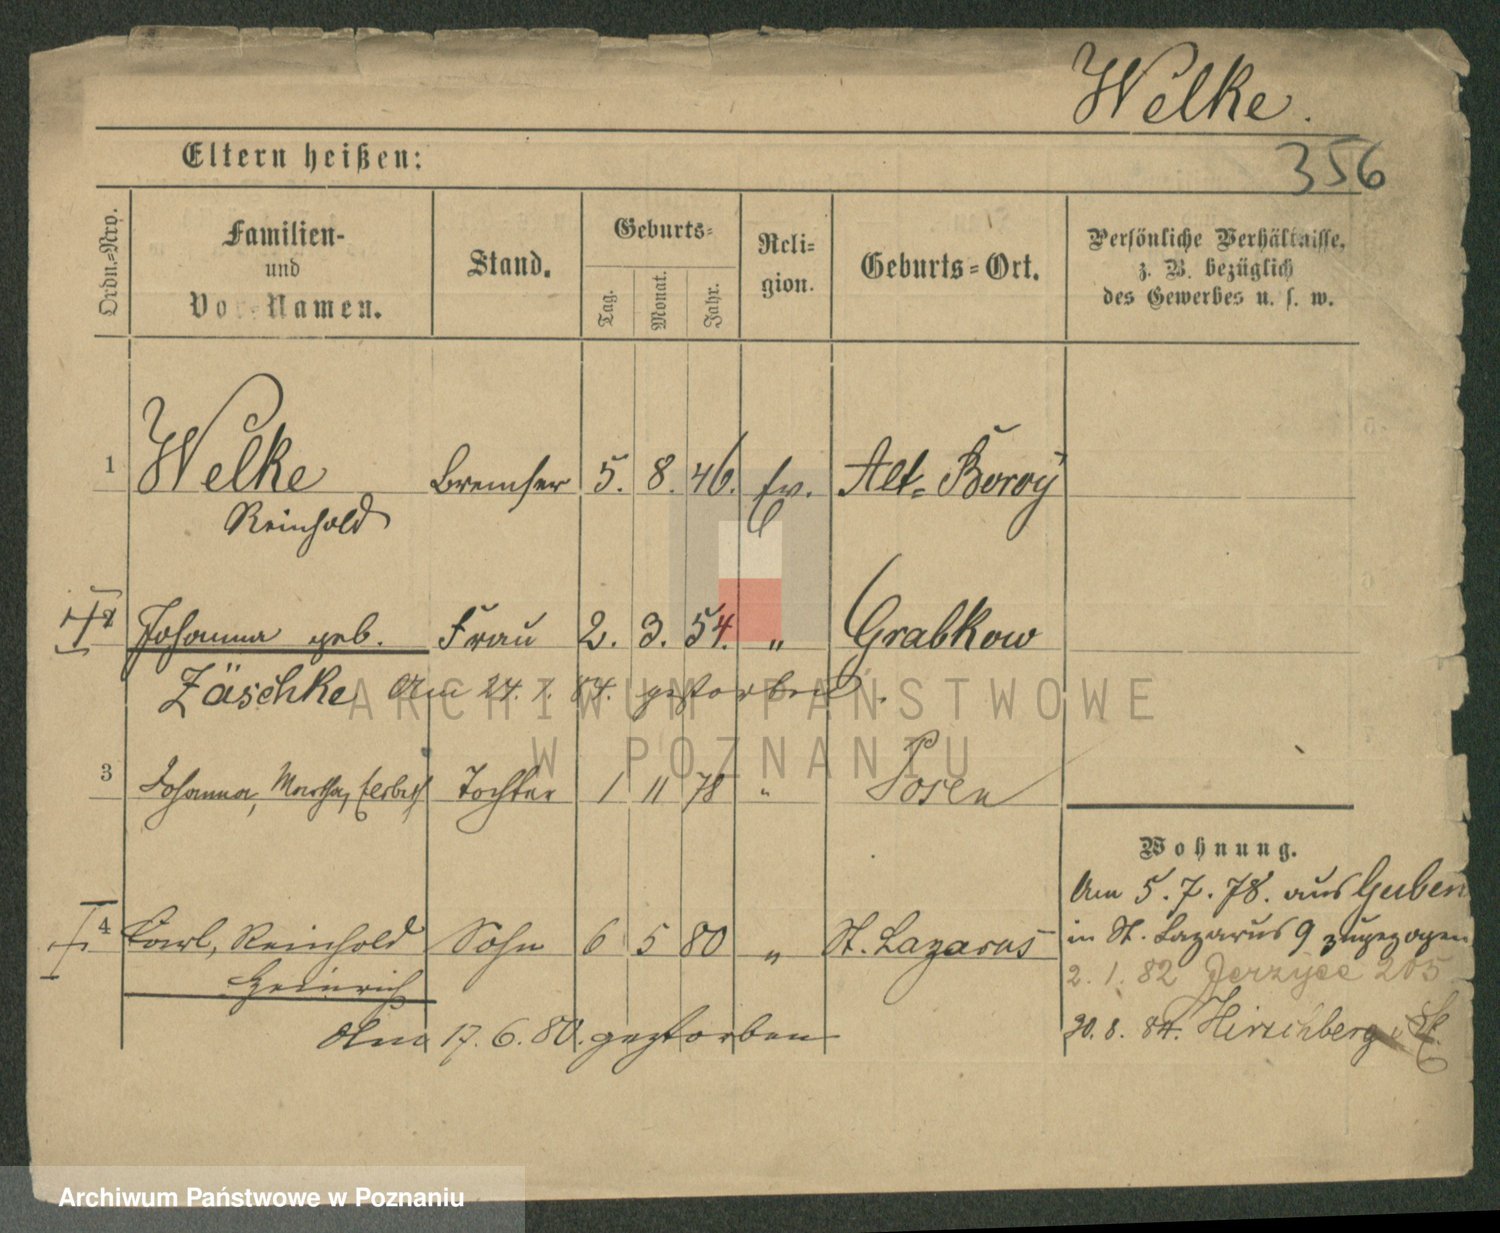 Welke.
356
Eltern heißen:
Ordn.=Nro.
Familien-
und
Vor-Namen.
Stand.
Geburts=
Tag.
Monat.
Jahr.
Reli=
gion.
Geburts=Ort.
Persönliche Verhältnisse,
z. B. bezüglich
des Gewerbes u. s. w.
1 Welke Bremser 5. 8. 46. ev. Alt=Boruy
Reinhold
2 Johanna geb. Frau 2. 3. 54. " Grabkow
Zäschke Am 24. 1. 84. gestorben.
3 Johanna, Martha, Tochter 1 11 78 " Posen
Wohnung.
Am 5. 7. 78. aus Guben
4 Carl, Reinhold Sohn 6 5 80 " St. Lazarus
in St. Lazarus 9 zugezogen
Heinrich
2. 1. 82 Jerzyce 205
Am 17. 6. 80. gestorben
20. 8. 84. Hirschberg
ARCHIWUM PAŃSTWOWE
W POZNANIU
Archiwum Państwowe w Poznaniu